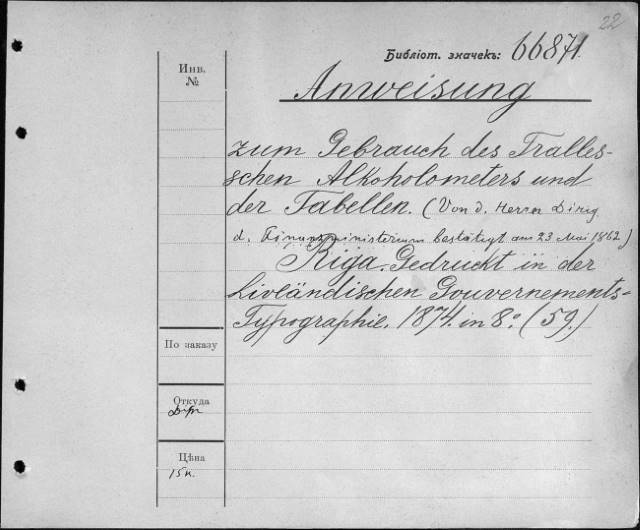 22
Библіот. значекъ: 66871.
Инв.
№
Anweisung
zum Gebrauch des Tralles-
schen Alkoholometers und
der Tabellen. (Von d. Herrn Dirig.
d. Finanzministerium bestätigt am 23 Mai 1862.)
Riga. Gedruckt in der
Livländischen Gouvernements-
Typographie. 1874. in 8º. (59.)
По заказу
Откуда
Цѣна
15 к.